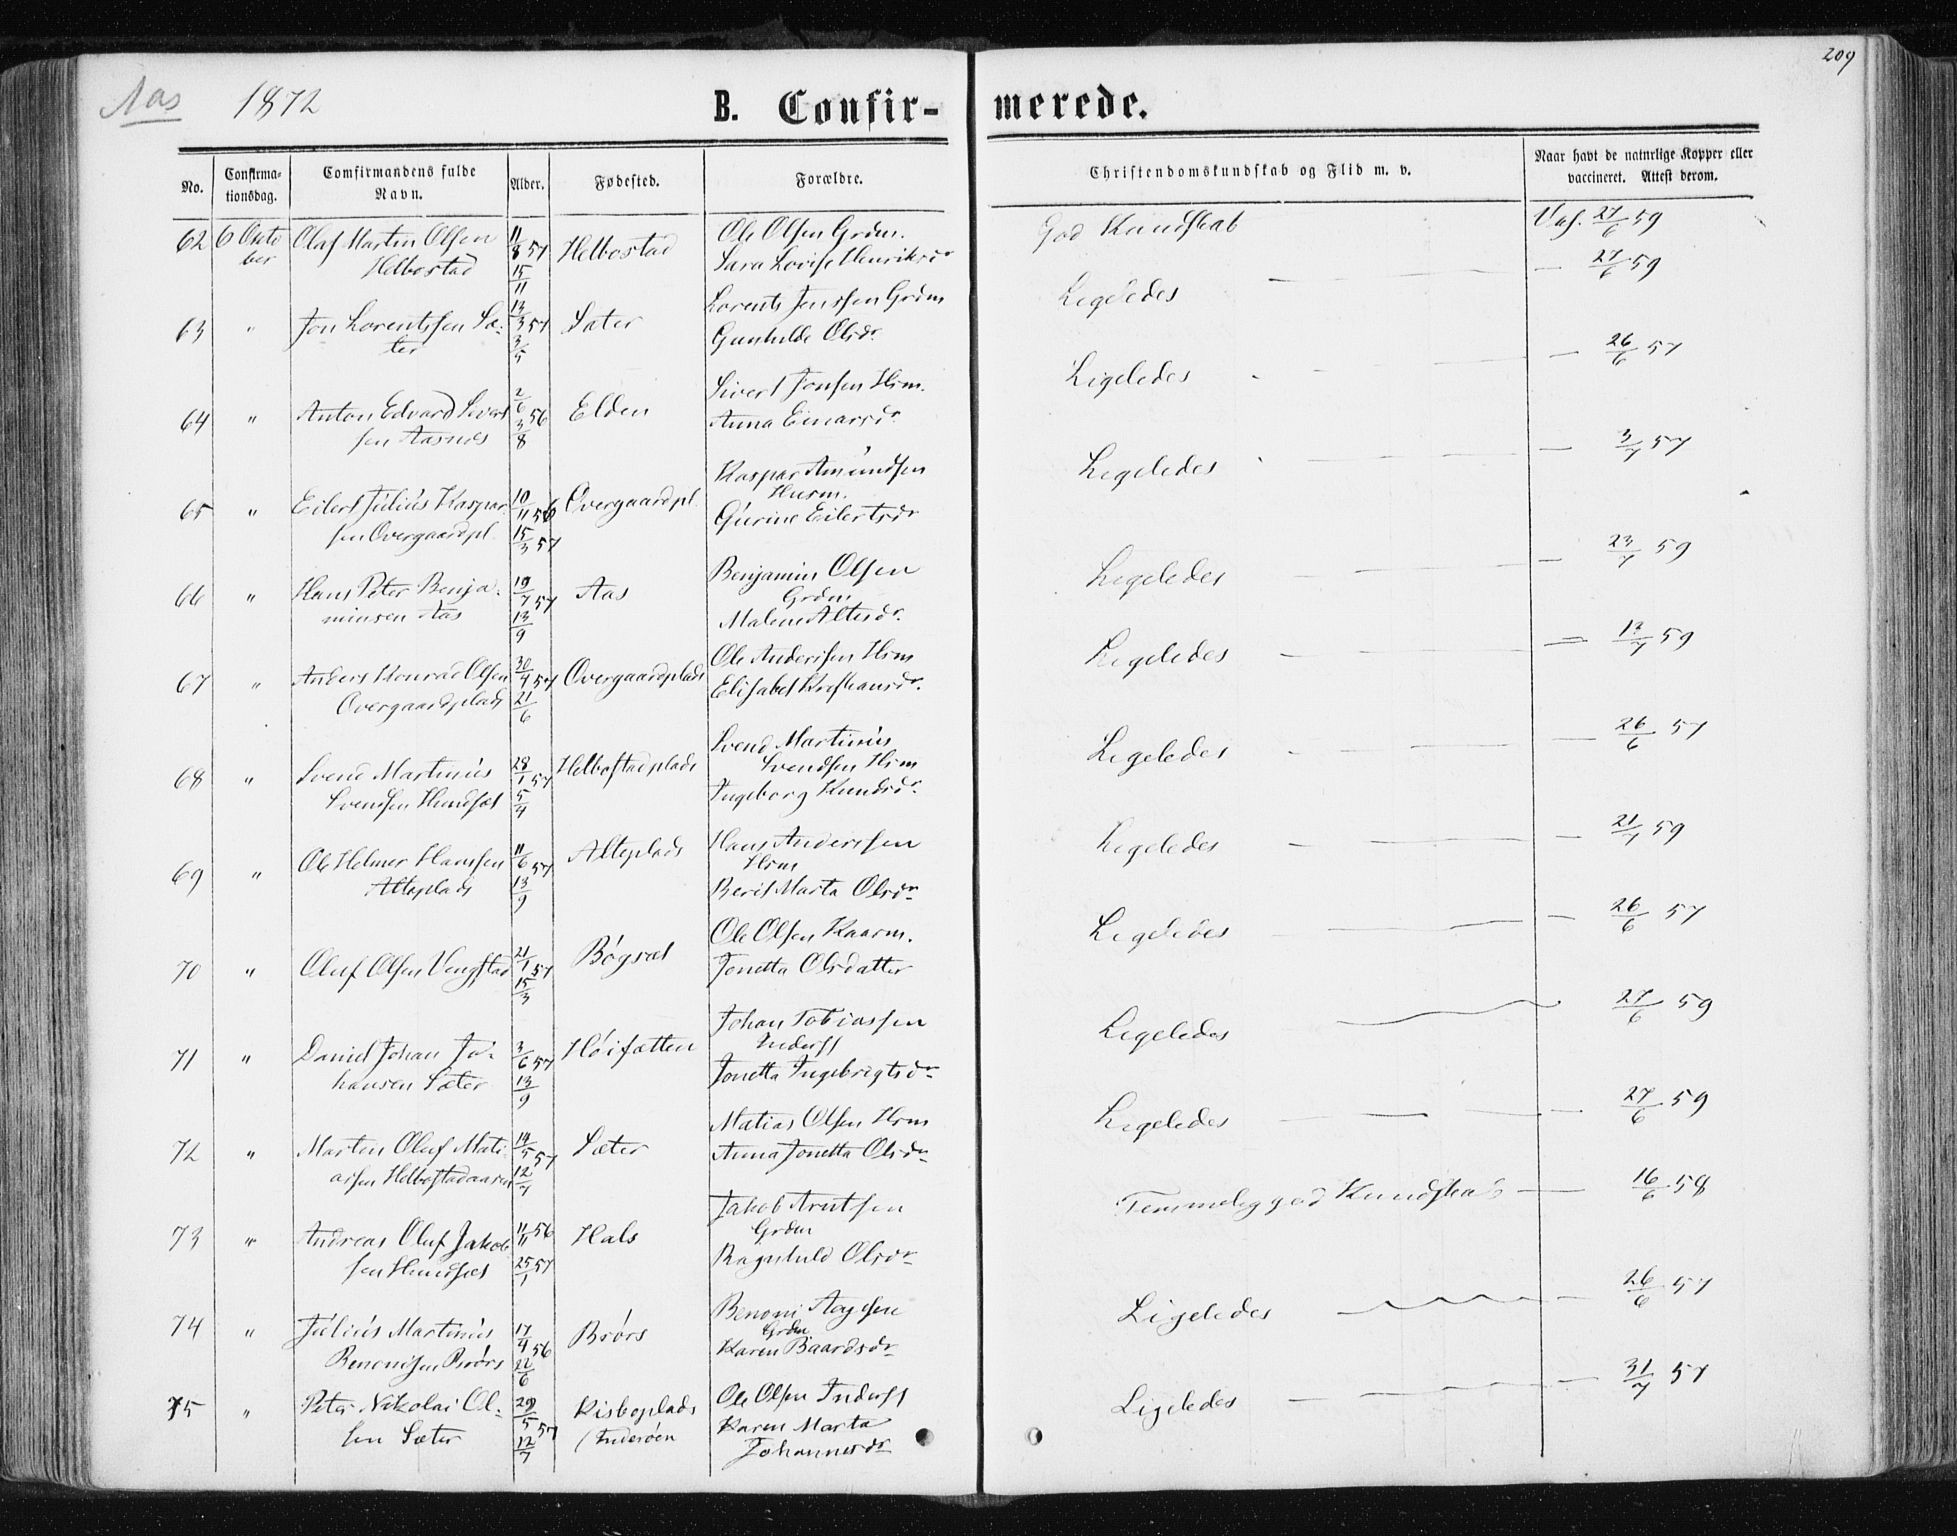 209
Aas 1872 B. Confirmerede.
No. Confirmationsdag. Comfirmandens fulde Navn. Alder. Fødested. Forældre. Christendomskundskab og Flid m. v. Naar havt de naturlige Kopper eller vaccineret. Attest derom.
62 6 Oktober Olaf Martin Olsen Helbostad 11/8 57 15/11 Helbostad Ole Olsen Grdm. Sara Lovise Henriksdr God Kundskab Vac. 27/6 59
63 " Jon Lorentssen Sæter 13/3 57 3/5 Sæter Lorents Jenssen Grdm Gunhilde Olsdr Ligeledes — 27/6 59
64 " Anton Edvard Sivertsen Aasnes 2/6 56 3/8 Elden Sivert Jonsen Hsm. Anna Einarsdr Ligeledes — 26/6 57
65 " Eilert Julius Kasparsen Overgaardpl. 10/11 56 15/3 57 Overgaardpl. Kaspar Amundsen Husm. Gurine Eilertsdr Ligeledes — 3/7 57
66 " Hans Peter Benjaminsen Aas 19/7 57 13/9 Aas Benjamin Olsen Grdm Malene Altesdr. Ligeledes — 23/7 59
67 " Anders Konrad Olsen Overgaardplads 30/4 57 21/6 Overgaardplads Ole Anderssen Hsm Elisabet Kristiansdr. Ligeledes — 13/7 59
68 " Svend Martinus Svendsen Hundsæt 28/1 57 5/4 Helbostadplads Svend Martinus Svendsen Hsm Ingeborg Knudsdr. Ligeledes — 26/6 57
69 " Ole Helmer Hanssen Alteplads 11/6 57 13/9 Alteplads Hans Anderssen Hsm Berit Marta Olsdr Ligeledes — 21/7 59
70 " Oluf Olsen Vengstad 21/1 57 15/3 Bøgsæt Ole Olsen Kaarm. Jonetta Olsdatter Ligeledes — 26/6 57
71 " Daniel Johan Johansen Sæter 3/6 57 13/9 Høisætten Johan Tobiassen Inderst Jonetta Ingebrigtsdr Ligeledes — 27/6 59
72 " Morten Oluf Matiassen Helbostadaasen 14/5 57 12/7 Sæter Matias Olsen Hsm Anna Jonetta Olsdr Ligeledes — 27/6 59
73 " Andreas Oluf Jakobsen Hundsæt 11/11 56 25/1 57 Hals Jakob Arntsen Grdm Ragnhild Olsdr Temmelig god Kundskab — 16/6 58
74 " Julius Martinus Benonisen Brørs 17/4 56 22/6 Brørs Benoni Aagesen Grdm Karen Baardsdr Ligeledes — 26/6 57
75 " Peter Nikolai Olsen Sæter 29/5 57 12/7 Risboplads (Inderøen Ole Olsen Inderst Karen Marta Johannesdr Ligeledes — 31/7 57